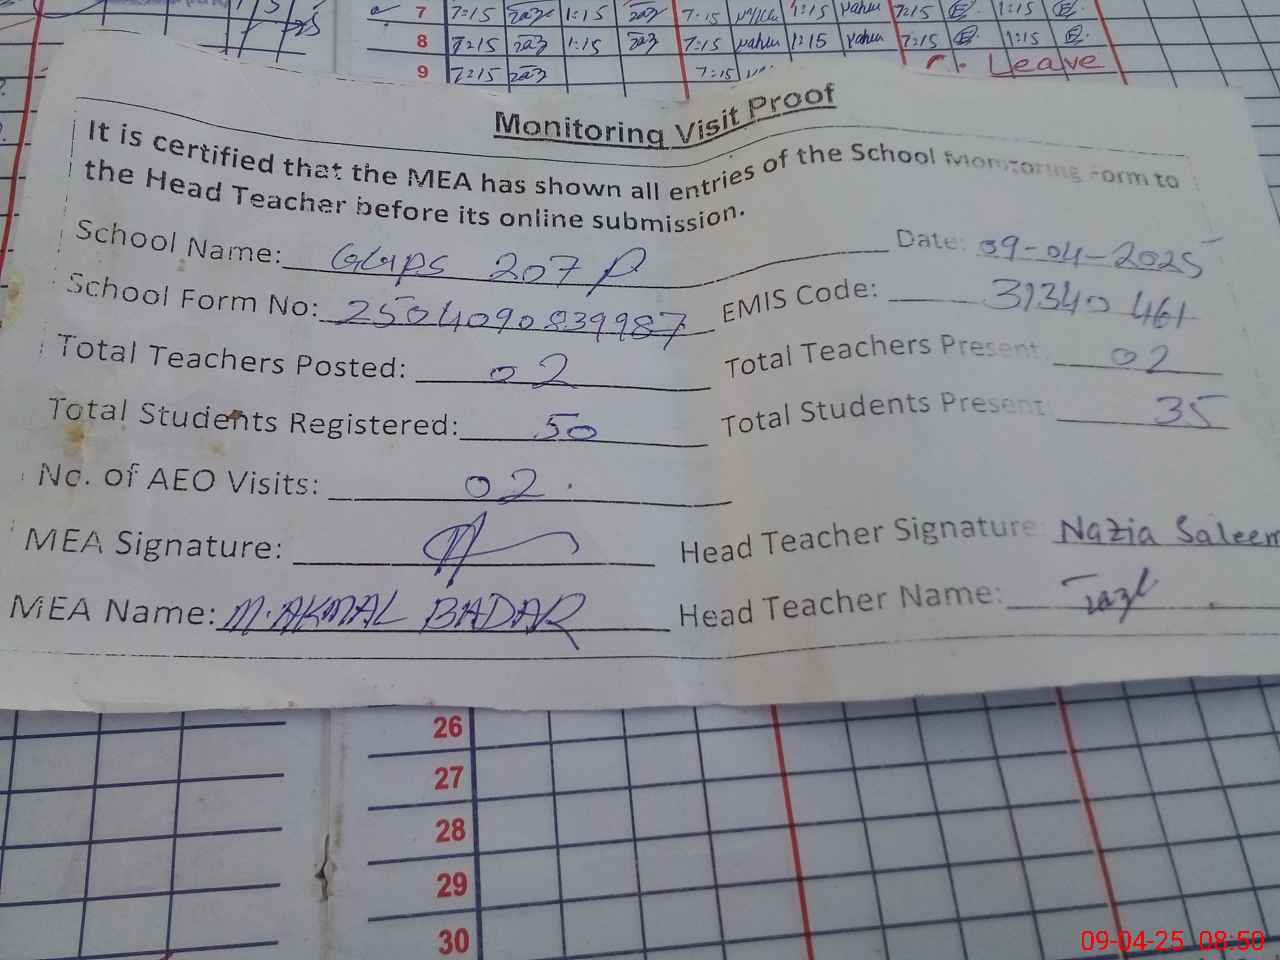 7 7:15 1:15 7:15 1:15 7:15 1:15
8 7:15 1:15 7:15 1:15 7:15 1:15
9 7:15 7:15 Leave
Monitoring Visit Proof
It is certified that the MEA has shown all entries of the School Monitoring Form to
the Head Teacher before its online submission.
School Name: GGPS 207 P Date: 09-04-2025
School Form No: 2504090839987 EMIS Code: 31340461
Total Teachers Posted: 02 Total Teachers Present: 02
Total Students Registered: 50 Total Students Present: 35
No. of AEO Visits: 02
MEA Signature: Head Teacher Signature: Nazia Saleem
MEA Name: M. AKMAL BADAR Head Teacher Name:
26
27
28
29
30
09-04-25 08:50